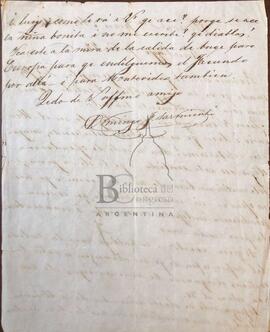 como le vá a V. qe ace? porqe se ace
la niña bonita i no me escribe? qe diablos!
a la mira de la salida de buqe para
Europa para qe endilguemos el Facundo
por allá i para Montevideo tambien
Qedo de V. affmo amigo
Domingo F. Sarmiento
Biblioteca del
Congreso
ARGENTINA